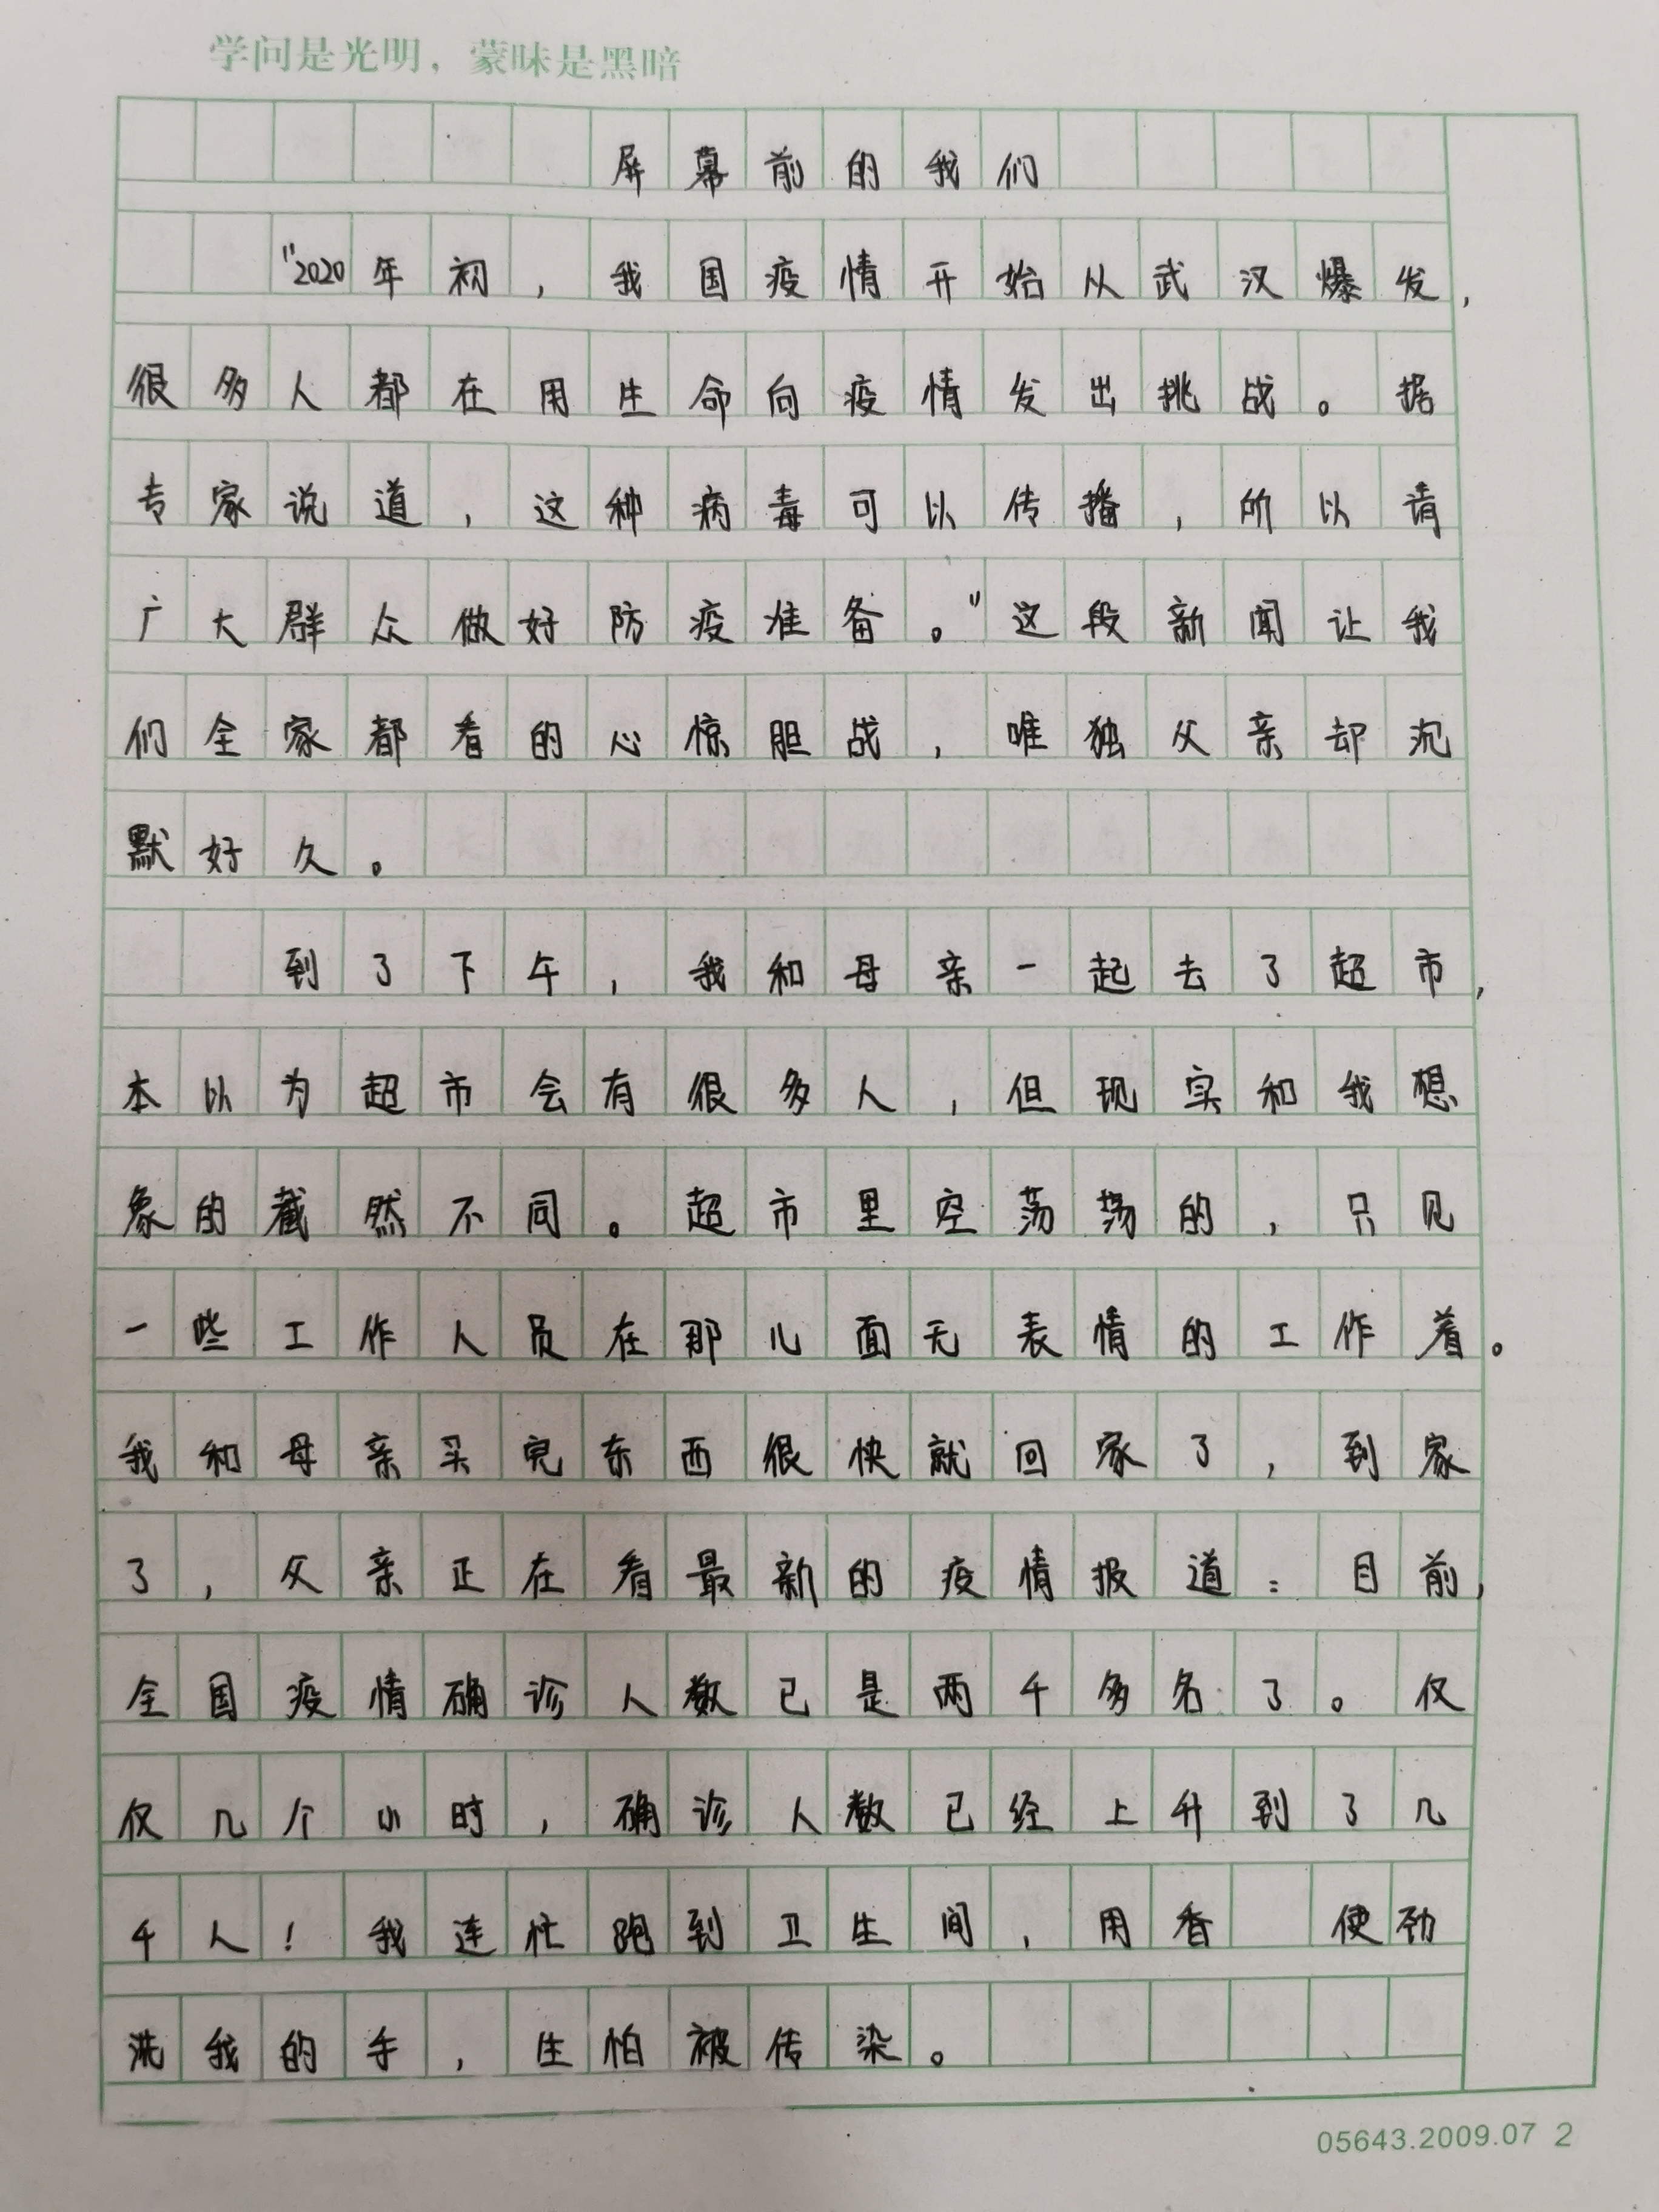 学问是光明，蒙昧是黑暗
屏幕前的我们
"2020年初，我国疫情开始从武汉爆发，
很多人都在用生命向疫情发出挑战。据
专家说道，这种病毒可以传播，所以请
广大群众做好防疫准备。"这段新闻让我
们全家都看的心惊胆战，唯独父亲却沉
默好久。
到了下午，我和母亲一起去了超市，
本以为超市会有很多人，但现实和我想
象的截然不同。超市里空荡荡的，只见
一些工作人员在那儿面无表情的工作着。
我和母亲买完东西很快就回家了，到家
了，父亲正在看最新的疫情报道：目前，
全国疫情确诊人数已是两千多名了。仅
仅几个小时，确诊人数已经上升到了几
千人！我连忙跑到卫生间，用香 使劲
洗我的手，生怕被传染。
05643.2009.07 2